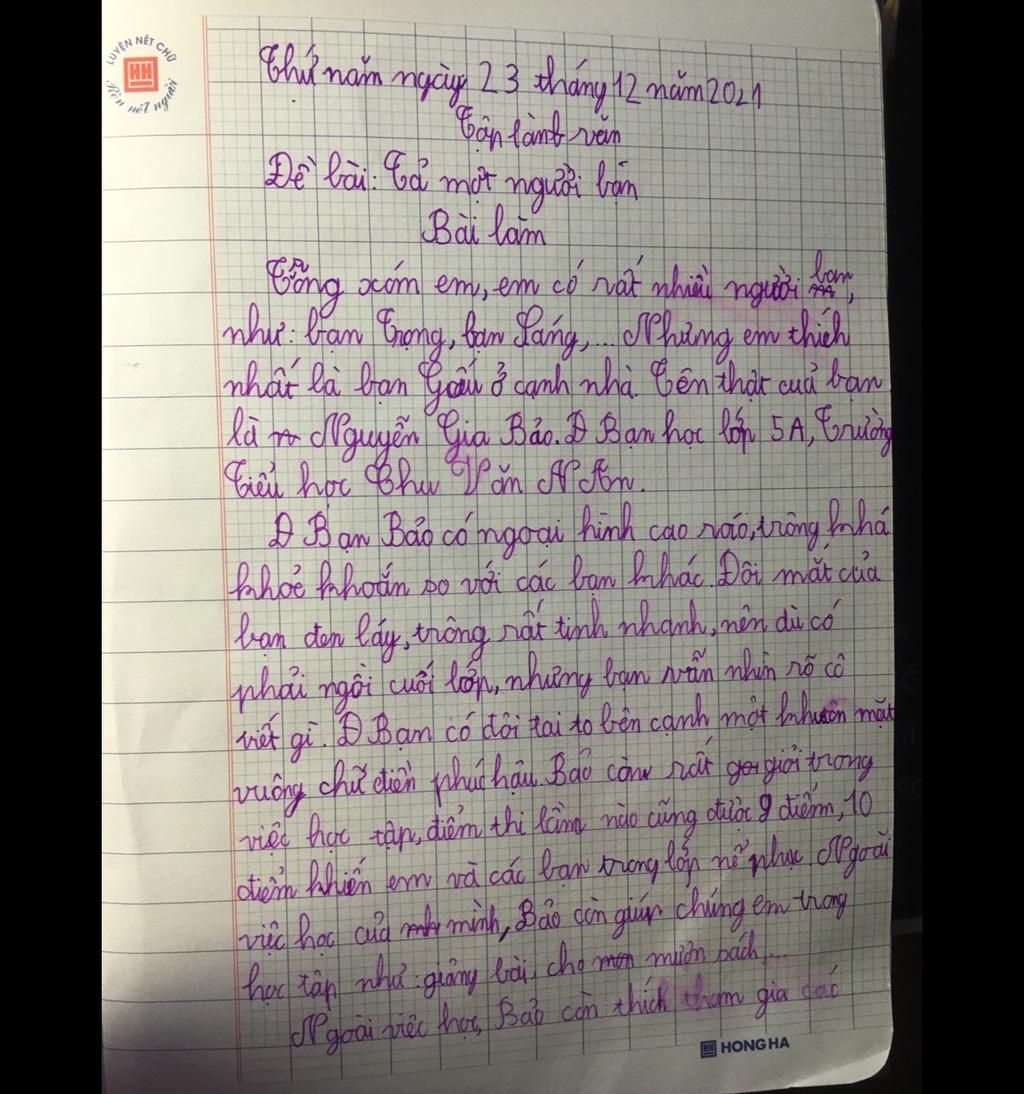 LUYỆN NÉT CHỮ
Rèn nét người
Thứ năm ngày 23 tháng 12 năm 2021
Tập làm văn
Đề bài: Tả một người bạn
Bài làm
Trong xóm em, em có rất nhiều người bạn,
như: bạn Trọng, bạn Sáng,... Nhưng em thích
nhất là bạn Gấu ở cạnh nhà. Tên thật của bạn
là Nguyễn Gia Bảo. Bạn học lớp 5A, Trường
Tiểu học Chu Văn An.
Bạn Bảo có ngoại hình cao ráo, trông khá
khoẻ khoắn so với các bạn khác. Đôi mắt của
bạn đen láy, trông rất tinh nhanh, nên dù có
phải ngồi cuối lớp, nhưng bạn vẫn nhìn rõ cô
viết gì. Bạn có đôi tai to bên cạnh một khuôn mặt
vuông chữ điền phúc hậu. Bảo còn rất giỏi trong
việc học tập, điểm thi lần nào cũng được 9 điểm, 10
điểm khiến em và các bạn trong lớp nể phục. Ngoài
việc học của mình, Bảo còn giúp chúng em trong
học tập như: giảng bài, cho mượn sách,...
Ngoài việc học, Bảo còn thích tham gia các
HONG HA